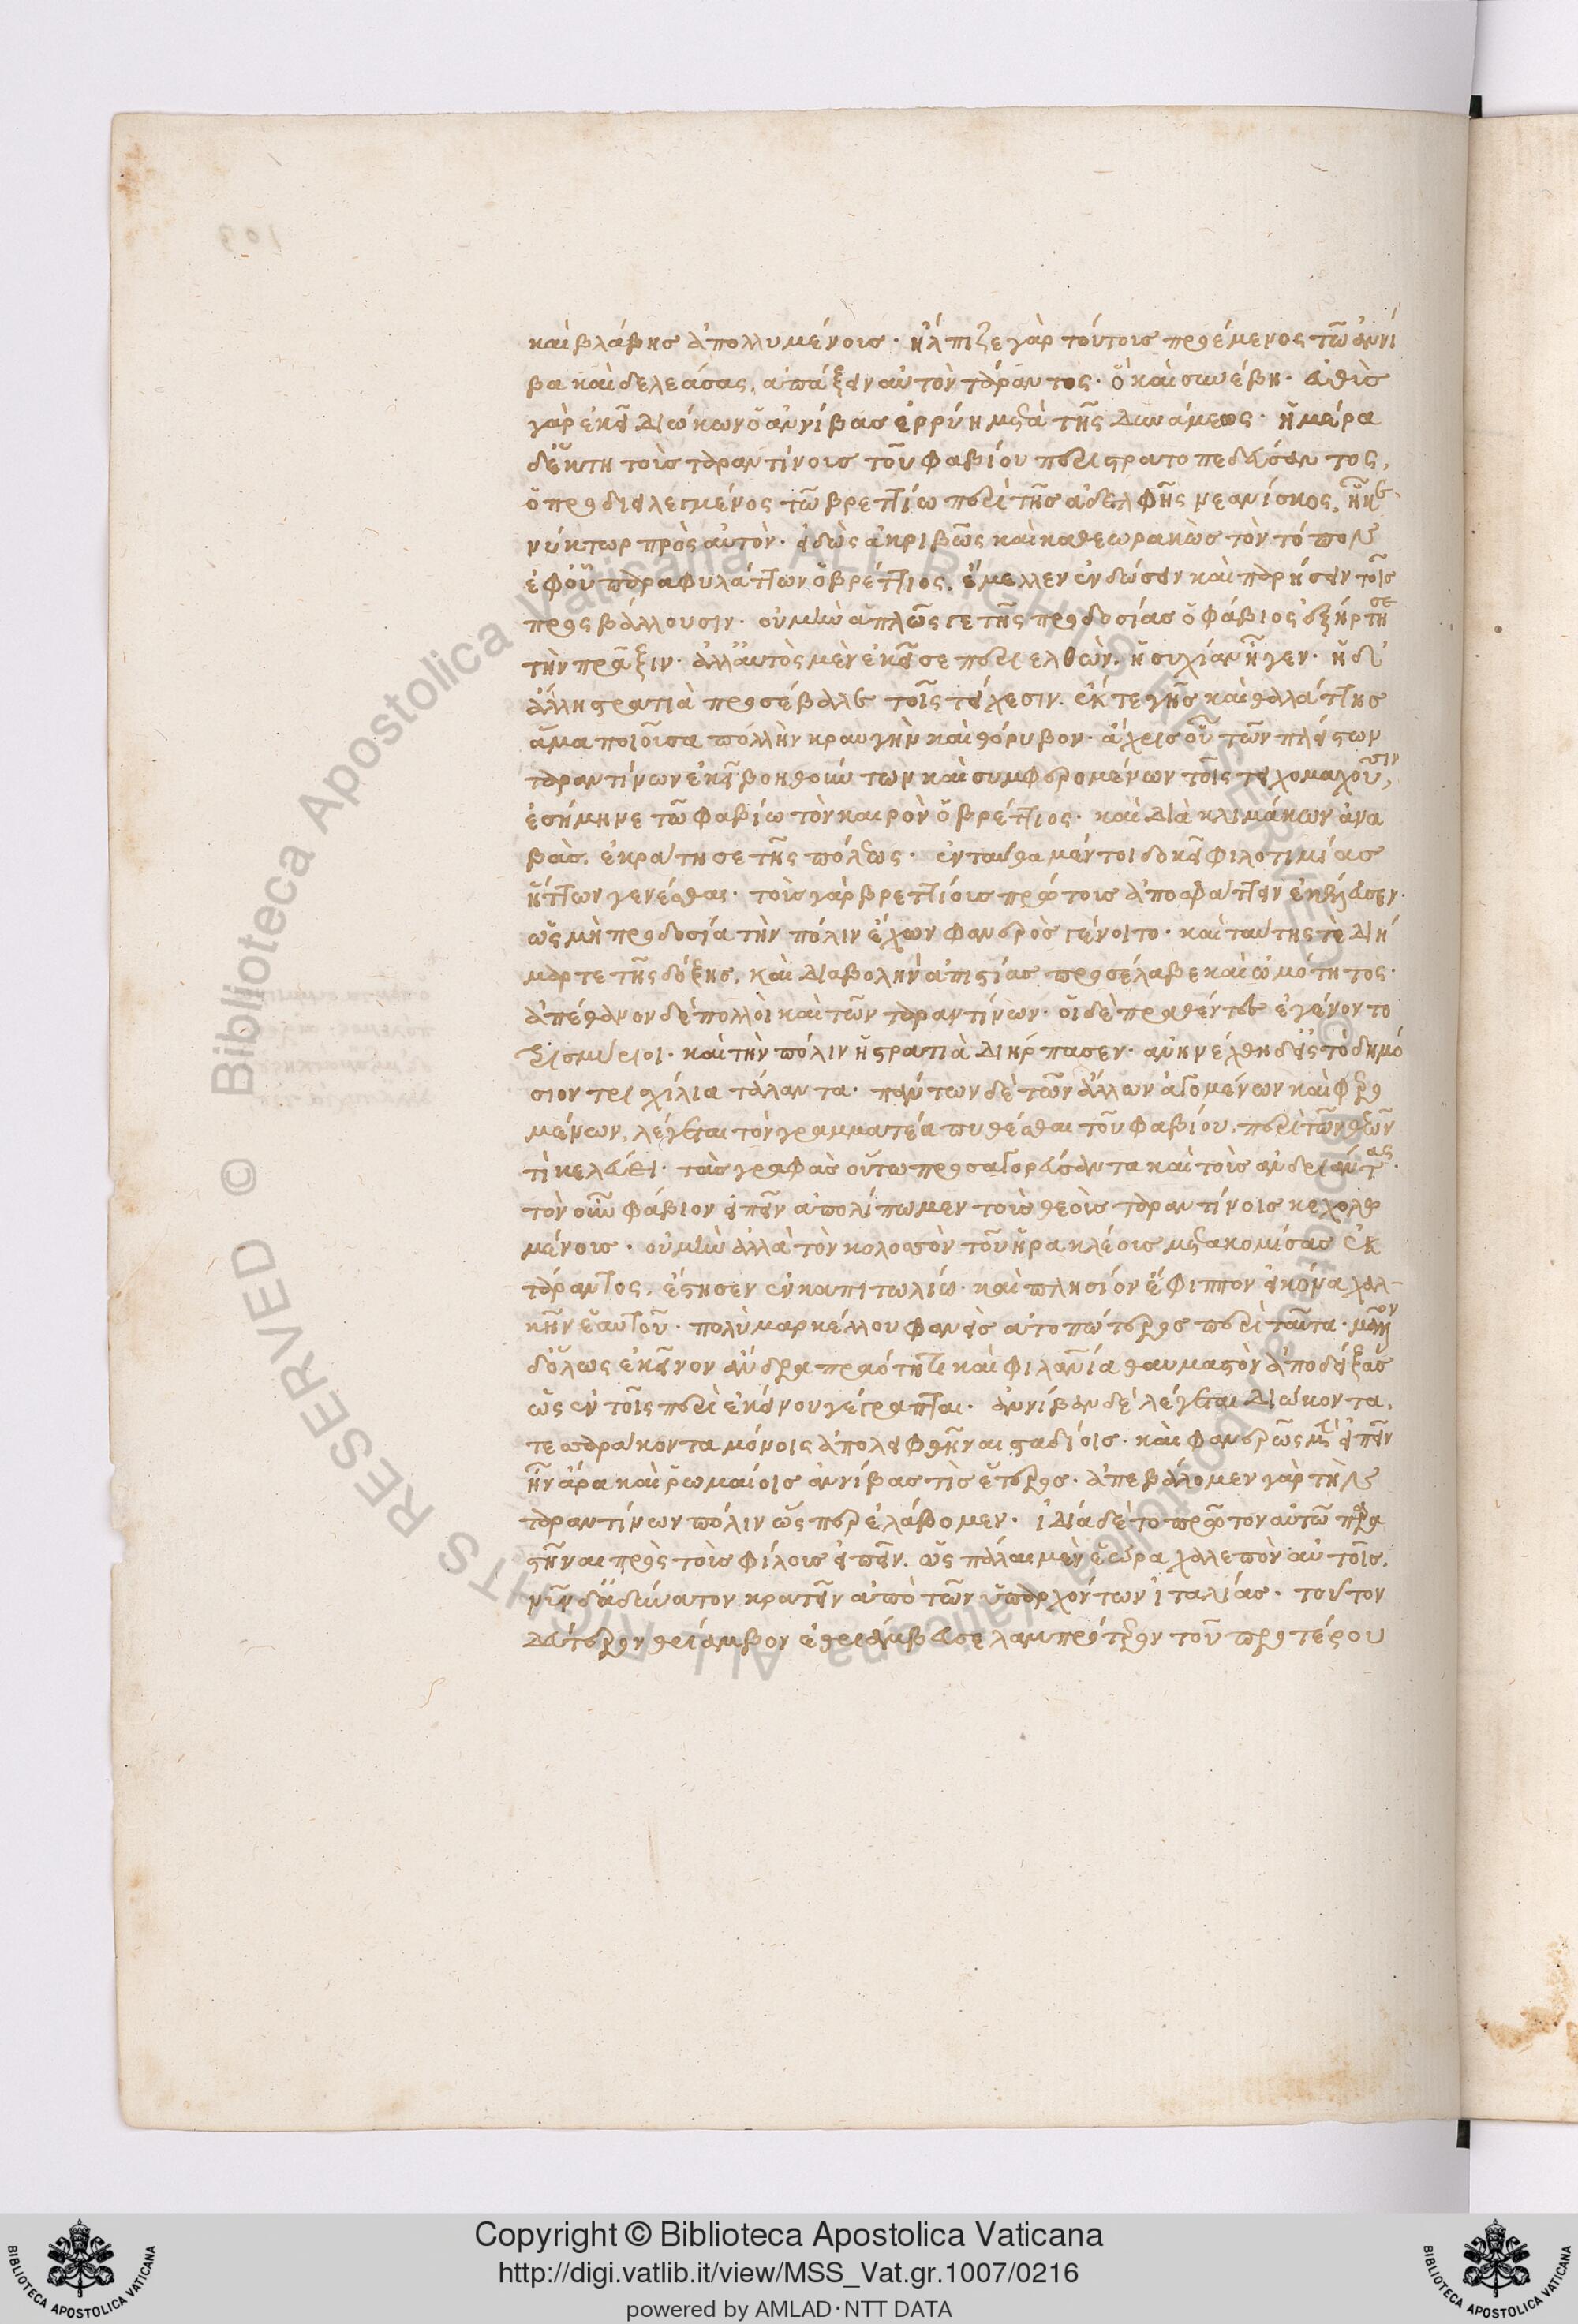 καὶ βλάβης ἀπολλυμένοις· ἤλπιζε γὰρ τούτοις προέμενος τῶ ἀννί
βα καὶ δελεάσας, ἀπάξειν αὐτὸν τάραντος· ὃ καὶ συνέβη· εὐθὺς
γὰρ ἐκεῖ διώκων ὁ ἀννίβας ἐρρύη μετὰ τῆς δυνάμεως· ἡμέρα
δ᾽ ἕκτη τοὺς ταραντίνους τοῦ φαβίου περιστρατοπεδεύσαντος,
ὁ προδιειλεγμένος τῶ βρεττίω περὶ τῆς ἀδελφῆς νεανίσκος, ἧκε
νύκτωρ πρὸς αὐτὸν· εἰδὼς ἀκριβῶς καὶ καθεωρακὼς τὸν τόπον
ἐφ᾽ οὗ παραφυλάττων ὁ βρέττιος, ἔμελλεν ἐνδώσειν καὶ παρήσειν τοῖς
προσβάλλουσιν· οὐ μὴν ἁπλῶς γε τῆς προδοσίας ὁ φάβιος ἐξήρτησε
τὴν πρᾶξιν· ἀλλ᾽ αὐτὸς μὲν ἐκεῖσε περιελθὼν, ἡσυχίαν ἦγεν· ἡ δ᾽
ἄλλη στρατιὰ προσέβαλε τοῖς τείχεσιν. ἔκ τε γῆς καὶ θαλάττης
ἅμα ποιοῦσα πολλὴν κραυγὴν καὶ θόρυβον· ἄχρις οὗ τῶν πλείστων
ταραντίνων ἐκεῖ βοηθούντων καὶ συμφερομένων τοῖς τειχομαχοῦσιν,
ἐσήμηνε τῶ φαβίω τὸν καιρὸν ὁ βρέττιος· καὶ διὰ κλιμάκων ἀνα
βὰς, ἐκράτησε τῆς πόλεως· ἐνταῦθα μέντοι δοκεῖ φιλοτιμίας
ἥττων γενέσθαι· τοὺς γὰρ βρεττίους πρώτους ἀποσφάττειν ἐκέλευσεν·
ὡς μὴ προδοσία τὴν πόλιν ἔχων φανερὸς γένοιτο· καὶ ταύτης τε διή
μαρτε τῆς δόξης, καὶ διαβολὴν ἀπιστίας προσέλαβε καὶ ὠμότητος·
ἀπέθανον δὲ πολλοὶ καὶ τῶν ταραντίνων· οἱ δὲ πραθέντες ἐγένοντο
τρισμύριοι· καὶ τὴν πόλιν ἡ στρατιὰ διήρπασεν· ἀνηνέχθη δ᾽ εἰς τὸ δημό
σιον τρισχίλια τάλαντα· πάντων δὲ τῶν ἄλλων ἀγομένων καὶ φερο
μένων, λέγεται τὸν γραμματέα πυθέσθαι τοῦ φαβίου, περὶ τῶν θεῶν
τί κελεύει· τὰς γραφὰς οὕτω προσαγορεύσαντα καὶ τοὺς ἀνδριάντας·
τὸν οὖν φάβιον εἰπεῖν ἀπολίπωμεν τοὺς θεοὺς ταραντίνοις κεχολω
μένους· οὐ μὴν ἀλλὰ τὸν κολοσσὸν τοῦ ἡρακλέους μετακομίσας ἐκ
τάραντος, ἔστησεν ἐν καπιτωλίω· καὶ πλησίον ἔφιππον εἰκόνα χαλ-
κῆν ἑαυτοῦ· πολὺ μαρκέλλου φανεὶς ἀτοπώτερος περὶ ταῦτα· μᾶλλον
δ᾽ ὅλως ἐκεῖνον ἄνδρα πραότητι καὶ φιλανθρωπία θαυμαστὸν ἀποδείξας
ὡς ἐν τοῖς περὶ ἐκείνου γέγραπται· ἀννίβαν δὲ λέγεται διώκοντα,
τεσσαράκοντα μόνοις ἀπολειφθῆναι σταδίοις· καὶ φανερῶς μὲν εἰπεῖν
ἦν ἄρα καὶ ῥωμαίοις ἀννίβας τὶς ἕτερος· ἀπεβάλομεν γὰρ τὴν
ταραντίνων πόλιν ὡς παρελάβομεν· ἰδία δὲ τὸ πρῶτον αὐτῶ παρα
στῆναι πρὸς τοὺς φίλους εἰπεῖν, ὡς πάλαι μὲν ἑώρα χαλεπὸν αὐτοῖς,
νῦν δ᾽ ἀδύνατον κρατεῖν ἀπὸ τῶν ὑπαρχόντων ἰταλίας· τοῦτον
δεύτερον θρίαμβον ἐθριάμβευσε λαμπρότερον τοῦ προτέρου
Copyright © Biblioteca Apostolica Vaticana
http://digi.vatlib.it/view/MSS_Vat.gr.1007/0216
powered by AMLAD·NTT DATA